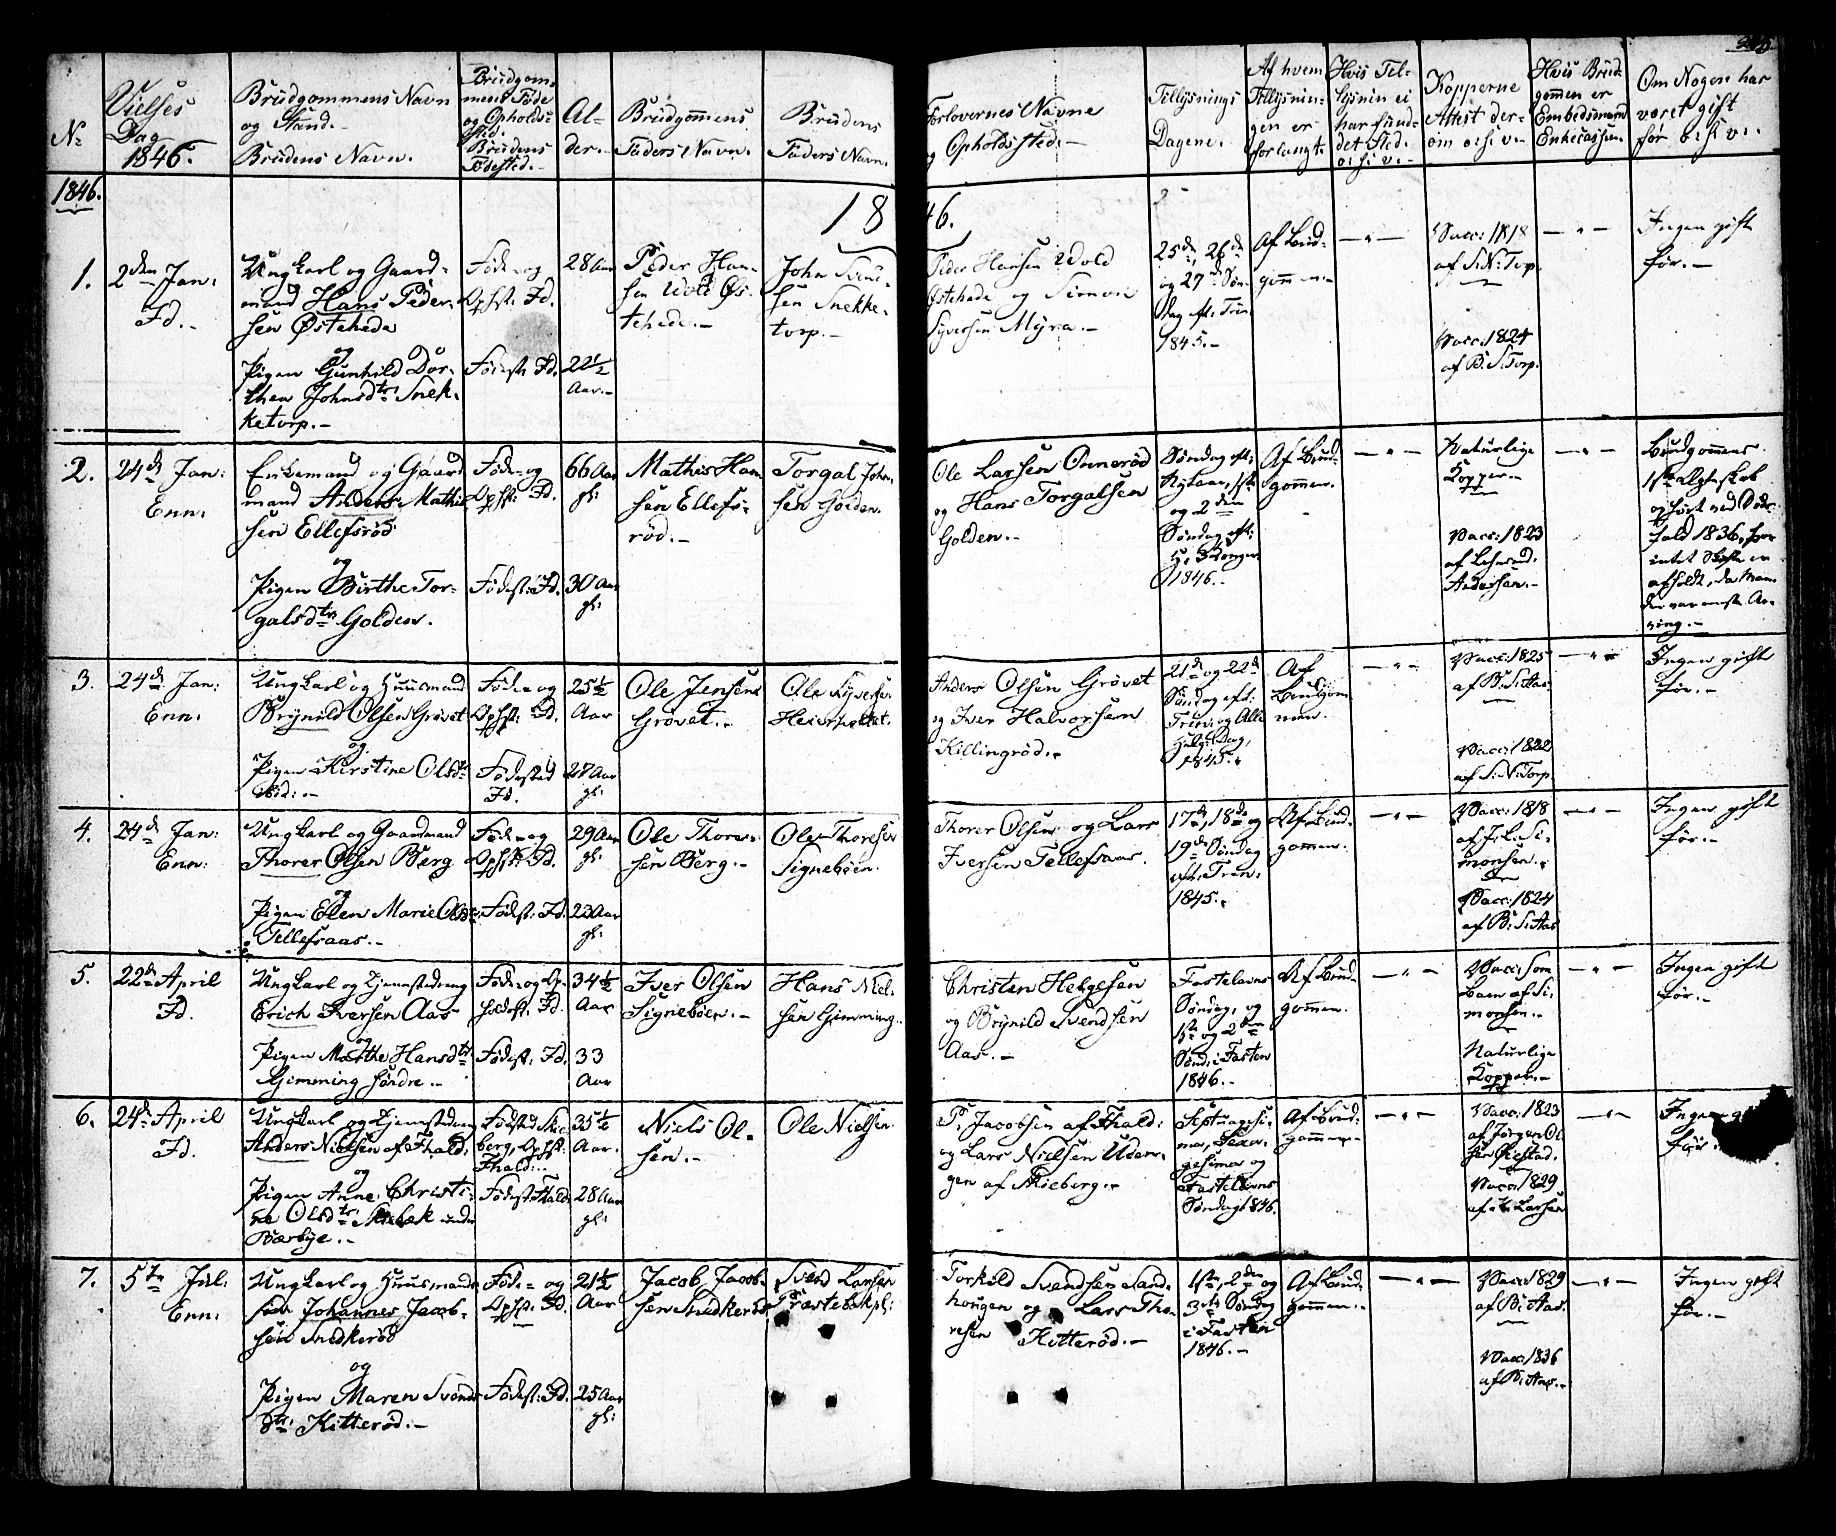 No
Vielses
Dag
1846.
Brudgommens Navn
og Stand.
Brudens Navn.
Brudgom-
mens Føde
og Opholds-
sted.
Brudens
Fødested.
Al-
der.
Brudgommens
Faders Navn.
Brudens
Faders Navn.
Forlovernes Navne
og Opholdssted.
Tillysnings
Dagene.
Af hvem
Tillysnin-
gen er
forlangt.
Hvis Til-
lysnin ei
har fund-
det Sted
o: s: v.
Kopperne
Attest der-
om o: s: v.
Hvis Brud-
gommen er
Embedsmand
Enkecassen.
Om Nogen har
været gift
før o: s: v:
1846.
1846.
1.
2den Jan:
Fd.
Ungkarl og Gaard-
mand Hans Peder-
sen Østehede
og
Pigen Gunhild Dor-
thea Johnsdtr Snek-
ketorp.
Føde- og
Ophst: Fd.
Fødest: Fd.
28 Aar
22½
Aar.
Peder Han-
sen Wold Øs-
tehede.
John Svend-
sen Snekke-
torp.
Peder Hansen Wold
Østehede og Simon
Syversen Myra.
25de, 26de
og 27de Søn-
dag eft: Trin:
1845.
Af Brud-
gommen.
Vacc: 1818
af S: N: Torp.
Vacc: 1824
af B: S: Torp.
Ingen gift
før.
2.
24de Jan:
Enn:
Enkemand og Gaard
mand Anders Mathis
sen Ellefsrød
og
Pigen Birthe Tor-
galsdtr Golden.
Føde- og
Ophst: Fd.
Fødest: Fd.
66 Aar
gl:
30 Aar
gl:
Mathis Han
sen Ellefs-
rød.
Torgal John
sen Golden.
Ole Larsen Onnerød
og Hans Torgalsen
Golden.
Søndag eft:
Nytaar, 1ste
og 2den
Søndag eft:
H: 3 Konger
1846.
Af Brud-
gommen.
Naturlige
Kopper.
Vacc: 1823
af Lehnsmd
Andersen.
Brudgommens
1ste Ægteskab
ophørt ved Døds-
fald 1836, hvor
intet Skifte er
afholdt, da Man-
den var eneste Ar-
ving.
3.
24de Jan:
Enn:
Ungkarl og Huusmand
Brynild Olsen Grøvet
og
Pigen Kirstine Olsdtr
ibid:
Føde- og
Ophst: Fd.
Fødested
Fd.
25½
Aar
27 Aar
gl:
Ole Jensen
Grøvet.
Ole Syversen
Anders Olsen Grøvet
og Iver Halvorsen
Killingrød.
21de og 22de
Søndag eft:
Trin: og Alle
Helg: Dag,
1845.
Af
Brudgom
men.
Vacc: 1825
af B: S: Aas.
Vacc: 1822
af S: N: Torp.
Ingen gift
før.
4.
24de Jan:
Enn:
Ungkarl og Gaardmand
Thorer Olsen Berg
og
Pigen Ellen Marie Olsdtr
Tellefsaas.
Føde- og
Ophst: Fd.
Fødest: Fd.
29 Aar
gl:
23 Aar
gl:
Ole Thorer-
sen Berg.
Ole Thoresen
Signebøen.
Thorer Olsen og Lars
Iversen Tellefsaas.
17de, 18de og
19de Søndag
eft: Trin:
1845.
Af Brud-
gommen.
Vacc: 1818
af J: L: Si-
monsen.
Vacc: 1824
af B: S: Aas
Ingen gift
før.
5.
22de April
Fd.
Ungkarl og Tjenestedreng
Erich Iversen Aas
og
Pigen Marthe Hansdtr
Gimming søndre.
Føde- og Op-
holdst: Fd.
Fødest: Fd.
34½
Aar
33
Aar
Iver Olsen
Signebøen.
Hans Niel-
sen Gimming.
Christen Helgesen
og Brynild Svendsen
Aas.
Fastelavns
Søndag, og
1ste og 2den
Sønd: i Fasten
1846.
Af Brud-
gommen.
Vacc: som
Barn af Si-
monsen.
Naturlige
Kopper.
Ingen gift
før.
6.
24de April
Fd.
Ungkarl og Tjenestedreng
Anders Nielsen af Fhald:
og
Pigen Anne Christi-
ne Olsdtr Skibæk under
Bærbye.
Fødested Skie-
berg, Ophst:
Fhald:
Fødest: Fhald:
35½
Aar.
28 Aar
gl:
Niels Ol-
sen.
Ole Nielsen.
P: Jacobsen af Fhald:
og Lars Nielsen Uden-
gen af Skieberg.
Septuagesi-
ma, Sexa-
gesima og
Fastelavns
Søndag 1846.
Af Brud-
gommen.
Vacc: 1823
af Jørgen Ol
sen Øiestad.
Vacc: 1829
Larsen
Ingen
før.
7.
5te Jul:
Enn:
Ungkarl og Huusmands
søn Johannes Jacob-
sen Snedkerød
og
Pigen Maren Svends
dtr: Kitterød.
Føde- og
Ophst: Fd.
Fødest: Fd.
21½
Aar
25 Aar
gl:
Jacob Jacob-
sen Snedkerød
Svend Larsen
Torkild Svendsen Sand-
hougen og Lars Tho-
resen Kitterød.
1ste, 2den og
3die Søndag
i Fasten
1846.
Af Brud-
gommen.
Vacc: 1829
af B: Aas.
Vacc: 1836
af B: Aas.
Ingen gift
før.